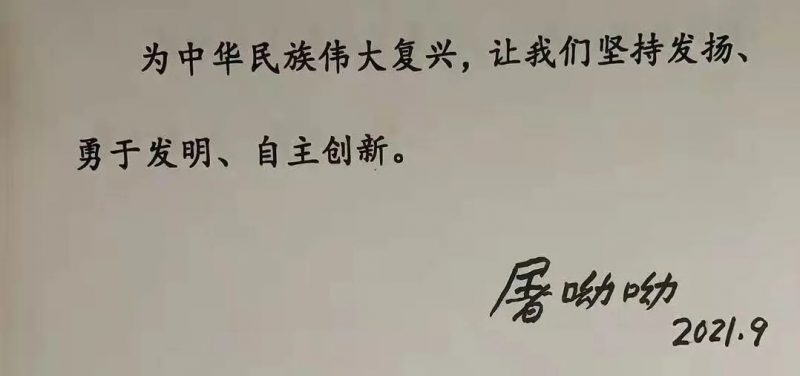 为中华民族伟大复兴，让我们坚持发扬、
勇于发明、自主创新。
屠呦呦
2021.9